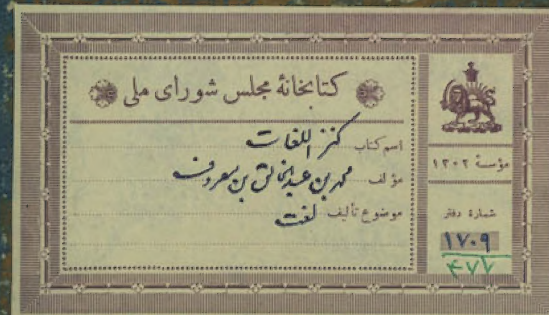 کتابخانهٔ مجلس شورای ملی
اسم کتاب کنز اللغات
مؤلف محمد بن عبدالخالق بن معروف
موضوع تألیف لغت
مؤسسهٔ ۱۳۰۲
شمارهٔ دفتر
۱۷۰۹
۴۷۷